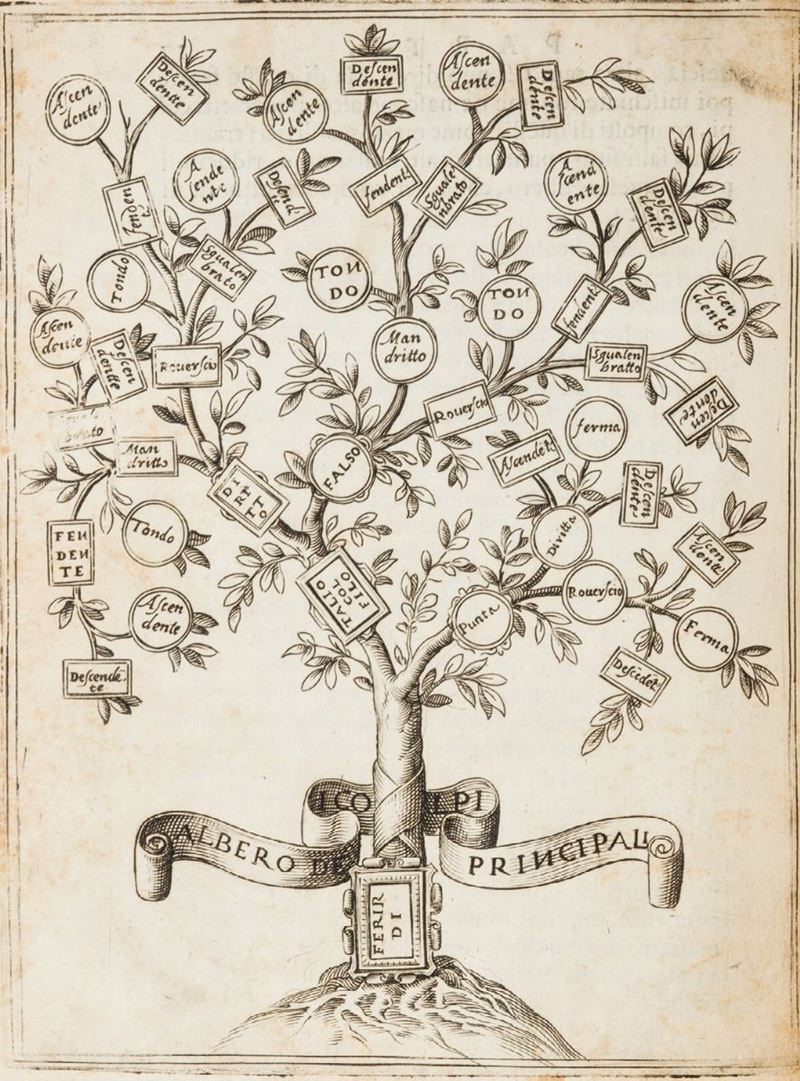 Ascen
dente
Descen
dentte
Ascen
dente
Descen
dente
Ascen
dente
Descen
dente
Fenden
te
Ascende
nte
Descend
Fendent
Sgualen
brato
Ascend
ente
Descen
dente
Sgualen
brato
Tondo
TON
DO
TON
DO
Fendent
Ascen
dente
Ascen
dente
Descen
dentte
Rouerscio
Man
dritto
Sgualen
bratto
Rouerscio
Descen
dente
brato
Man
dritto
FALSO
ferma
Ascendet
DI
RIT
TO
Descen
dente
FEN
DEN
TE
Tondo
Diritta
Ascen
dente
TALIO
COL
FILO
Punta
Rouerscio
Ascen
dente
Ferma
Descende
te
Descedet
I CO LPI
ALBERO DE PRINCIPALI
FERIR
DI